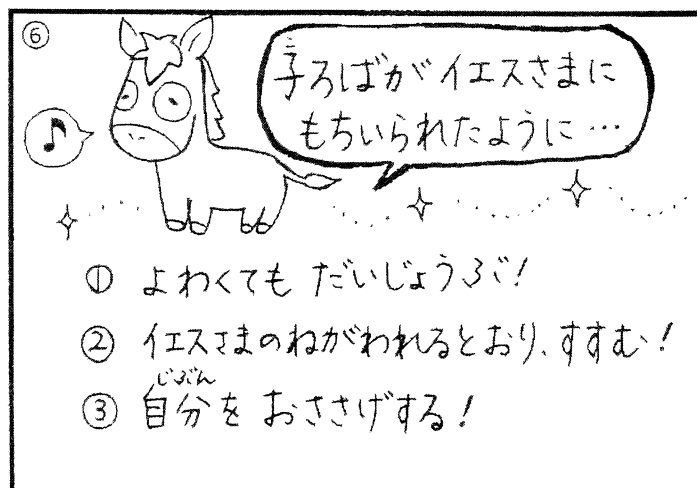 ⑥
子ろばがイエスさまに
もちいられたように…
① よわくても だいじょうぶ！
② イエスさまのねがわれるとおり、すすむ！
③ 自分を おささげする！